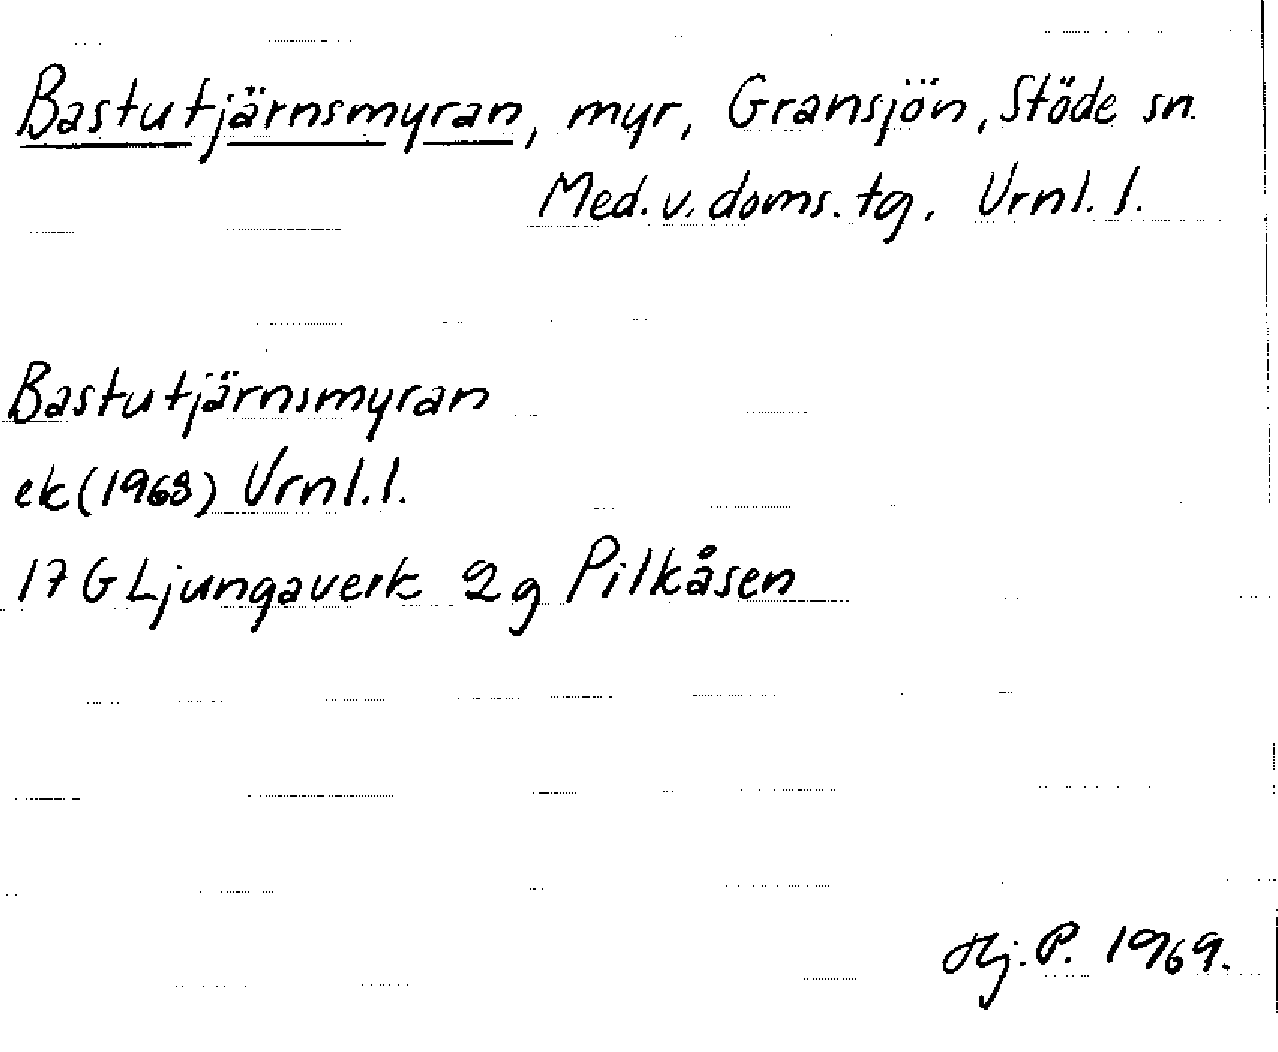 Bastutjärnsmyran, myr, Gransjön, Stöde sn.
Med. v. doms. tg. Vrnl. l.
Bastutjärnsmyran
ek (1968) Vrnl. l.
17 G Ljungaverk 2 g Pilkåsen
Hj. P. 1969.